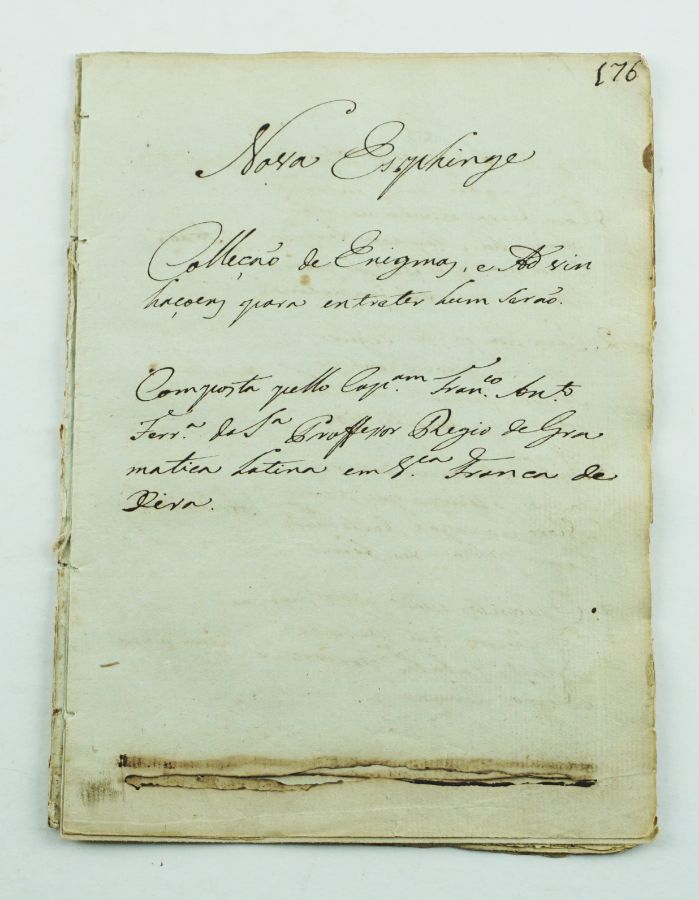 176
Nova Esphinge
Collecção de Enigmas, e Ad vin
haçoens para entreter hum Serão.
Composta pello Cap.am Fran.co Ant.o
Ferr.a da S.a Professor Regio de Gra
matica Latina em V.ca Franca de
Xira.